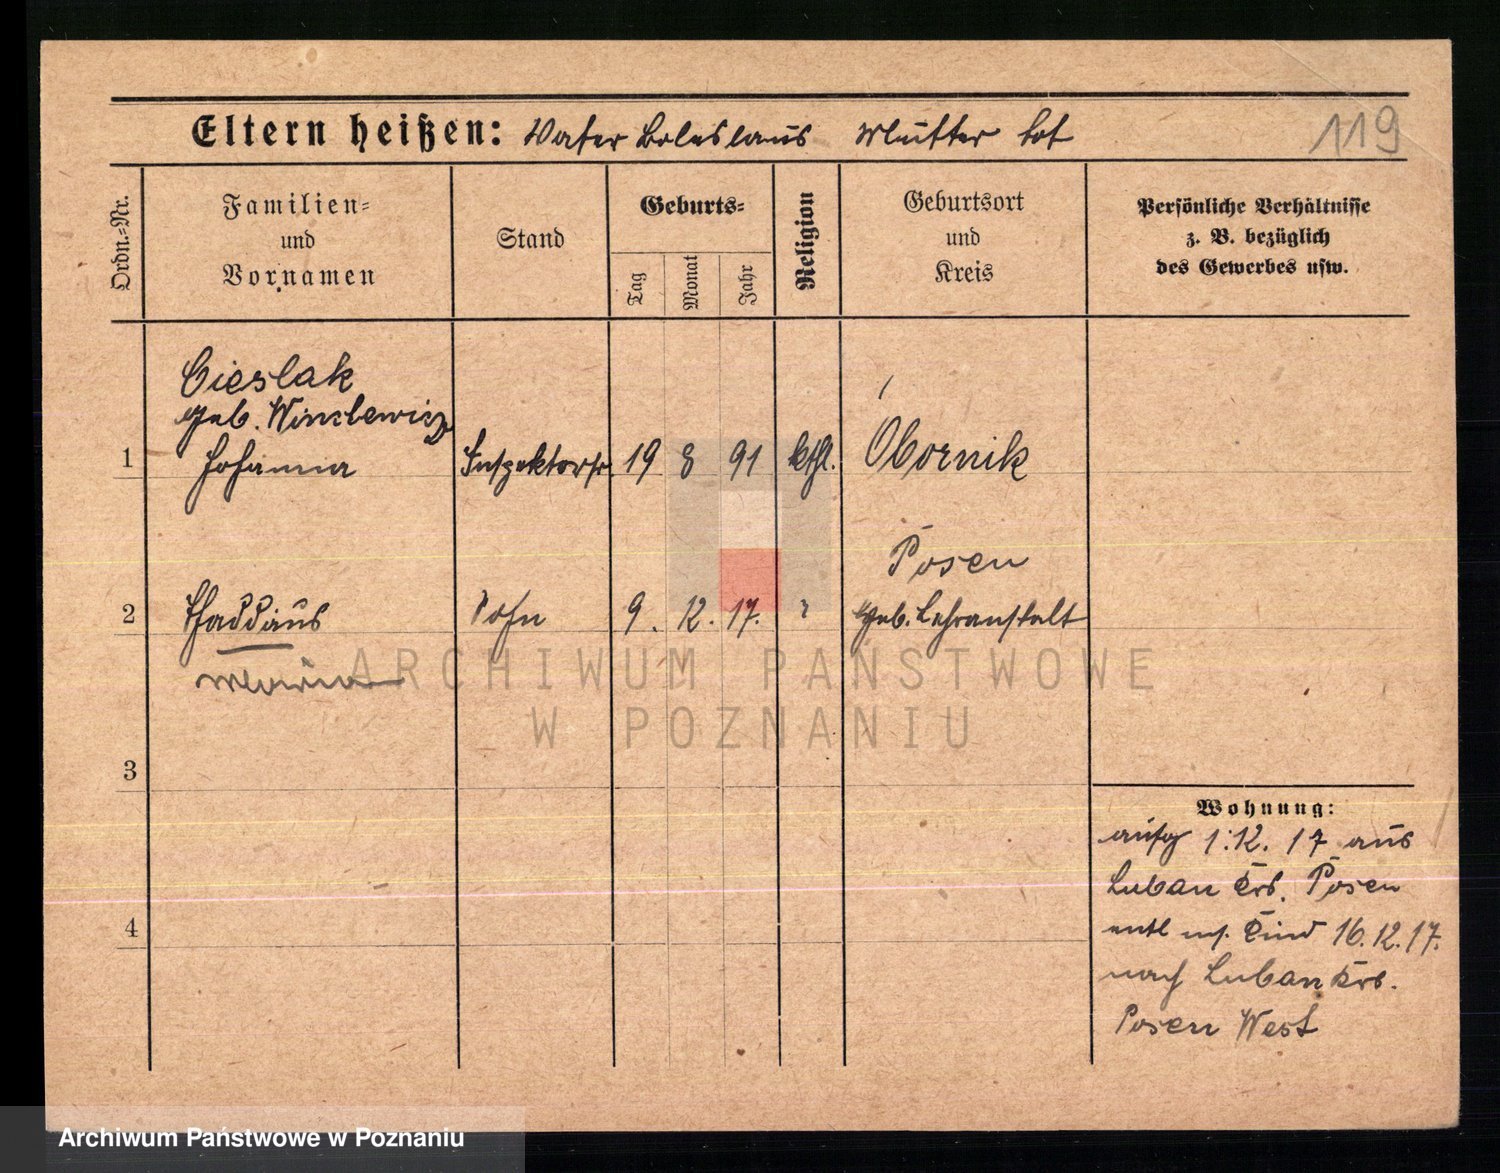 119
Eltern heißen: Vater Boleslaus Mutter tot
Ordn.-Nr.
Familien-
und
Vornamen
Stand
Geburts-
Tag
Monat
Jahr
Religion
Geburtsort
und
Kreis
Persönliche Verhältnisse
z. B. bezüglich
des Gewerbes usw.
Cieslak
geb.
1 Johanna Inspektorfr. 19 8 91 kthl. Obornik
Posen
2 Thaddäus Sohn 9. 12. 17. Geb. Lehranstalt
Maria
3
4
Wohnung:
aufg 1.12.17 aus
Luban Krs. Posen
entl m. Kind 16.12.17.
nach Luban Krs.
Posen West
ARCHIWUM PAŃSTWOWE
W POZNANIU
Archiwum Państwowe w Poznaniu